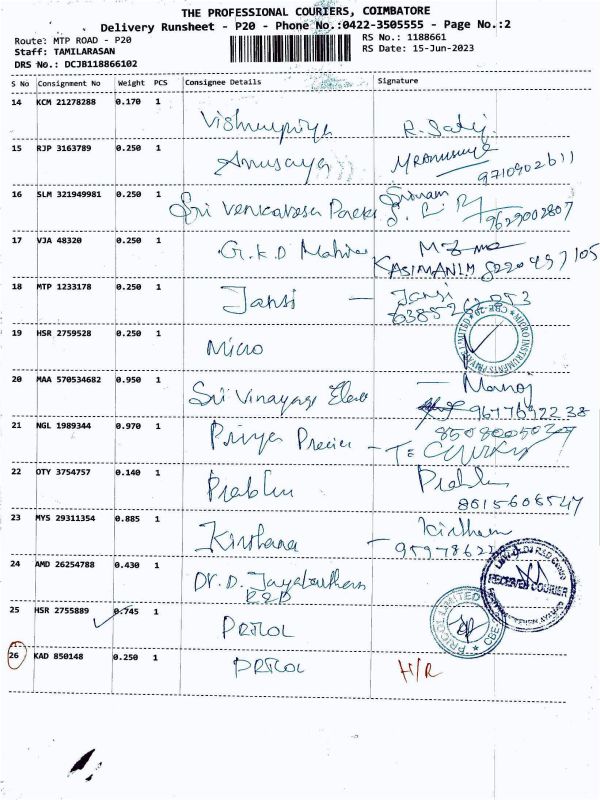 THE PROFESSIONAL COURIERS, COIMBATORE
Delivery Runsheet - P20 - Phone No.:0422-3505555 - Page No.:2
Route: MTP ROAD - P20
RS No.: 1188661
Staff: TAMILARASAN
RS Date: 15-Jun-2023
DRS No.: DCJB118866102
S No Consignment No Weight PCS Consignee Details Signature
14 KCM 21278288 0.170 1
Vishnupriya
15 RJP 3163789 0.250 1
Anusaya
9710902611
16 SLM 321949981 0.250 1
Sri Venkatesa
9629002807
17 VJA 48320 0.250 1
G.K.D
KASIMANIM 8220497105
18 MTP 1233178 0.250 1
Jansi - Jansi
19 HSR 2759528 0.250 1
MICRO INSTRUMENTS PRIVATE LIMITED
Micro
20 MAA 570534682 0.950 1
Sri Vinayaga - Manoj
21 NGL 1989344 0.970 1
Priya
22 OTY 3754757 0.140 1
Prabhu
23 MYS 29311354 0.885 1
24 AMD 26254788 0.430 1
Dr. D.
RECEIVED COURIER
25 HSR 2755889 0.745 1
PRICOL LIMITED CBE
PRICOL
26 KAD 850148 0.250 1
PRICOL H/R